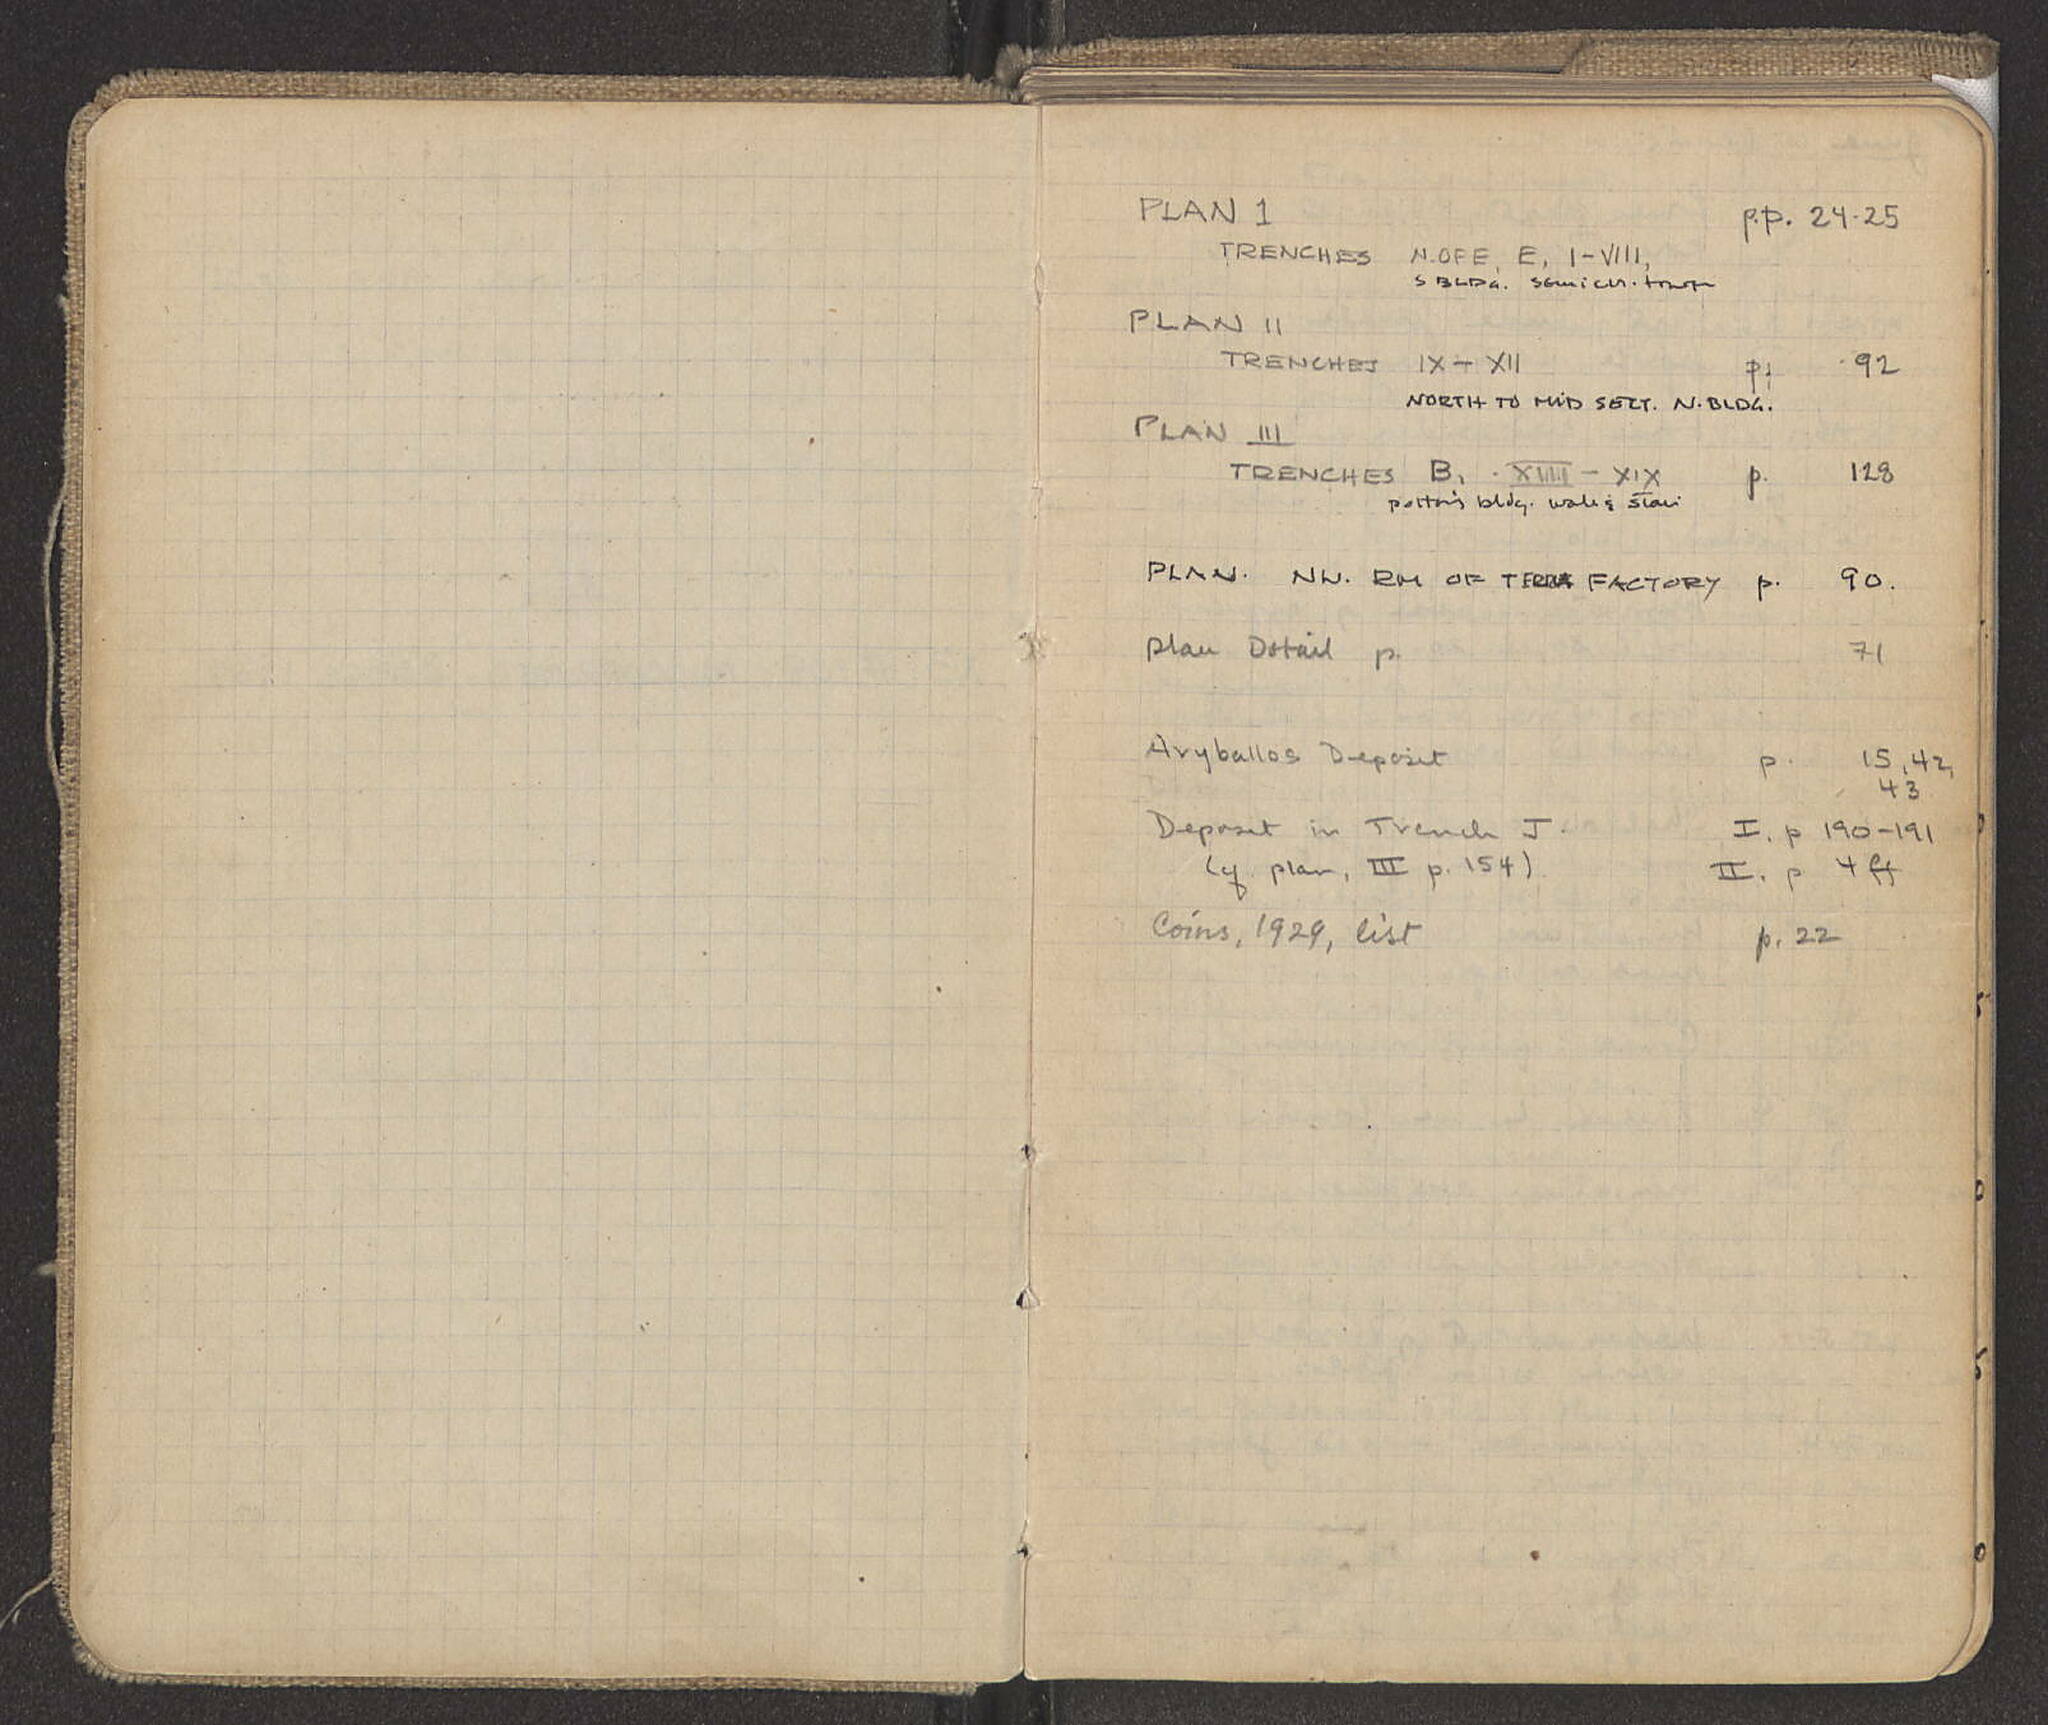 PLAN 1 p.p. 24-25
TRENCHES N. OF E, E, I-VIII,
S BLDG. semicir. tower
PLAN II
TRENCHES IX - XII p. 92
NORTH TO MID SECT. N. BLDG.
PLAN III
TRENCHES B, XIIII - XIX p. 128
potter's bldg. wall &
PLAN. NW. RM OF FACTORY p. 90.
plan Detail p. 71
Aryballos Deposit p. 15, 42,
43
Deposit in Trench J. I. p 190-191
(cf. plan, III p. 154) II. p 4 ff
Coins, 1929, list p. 22